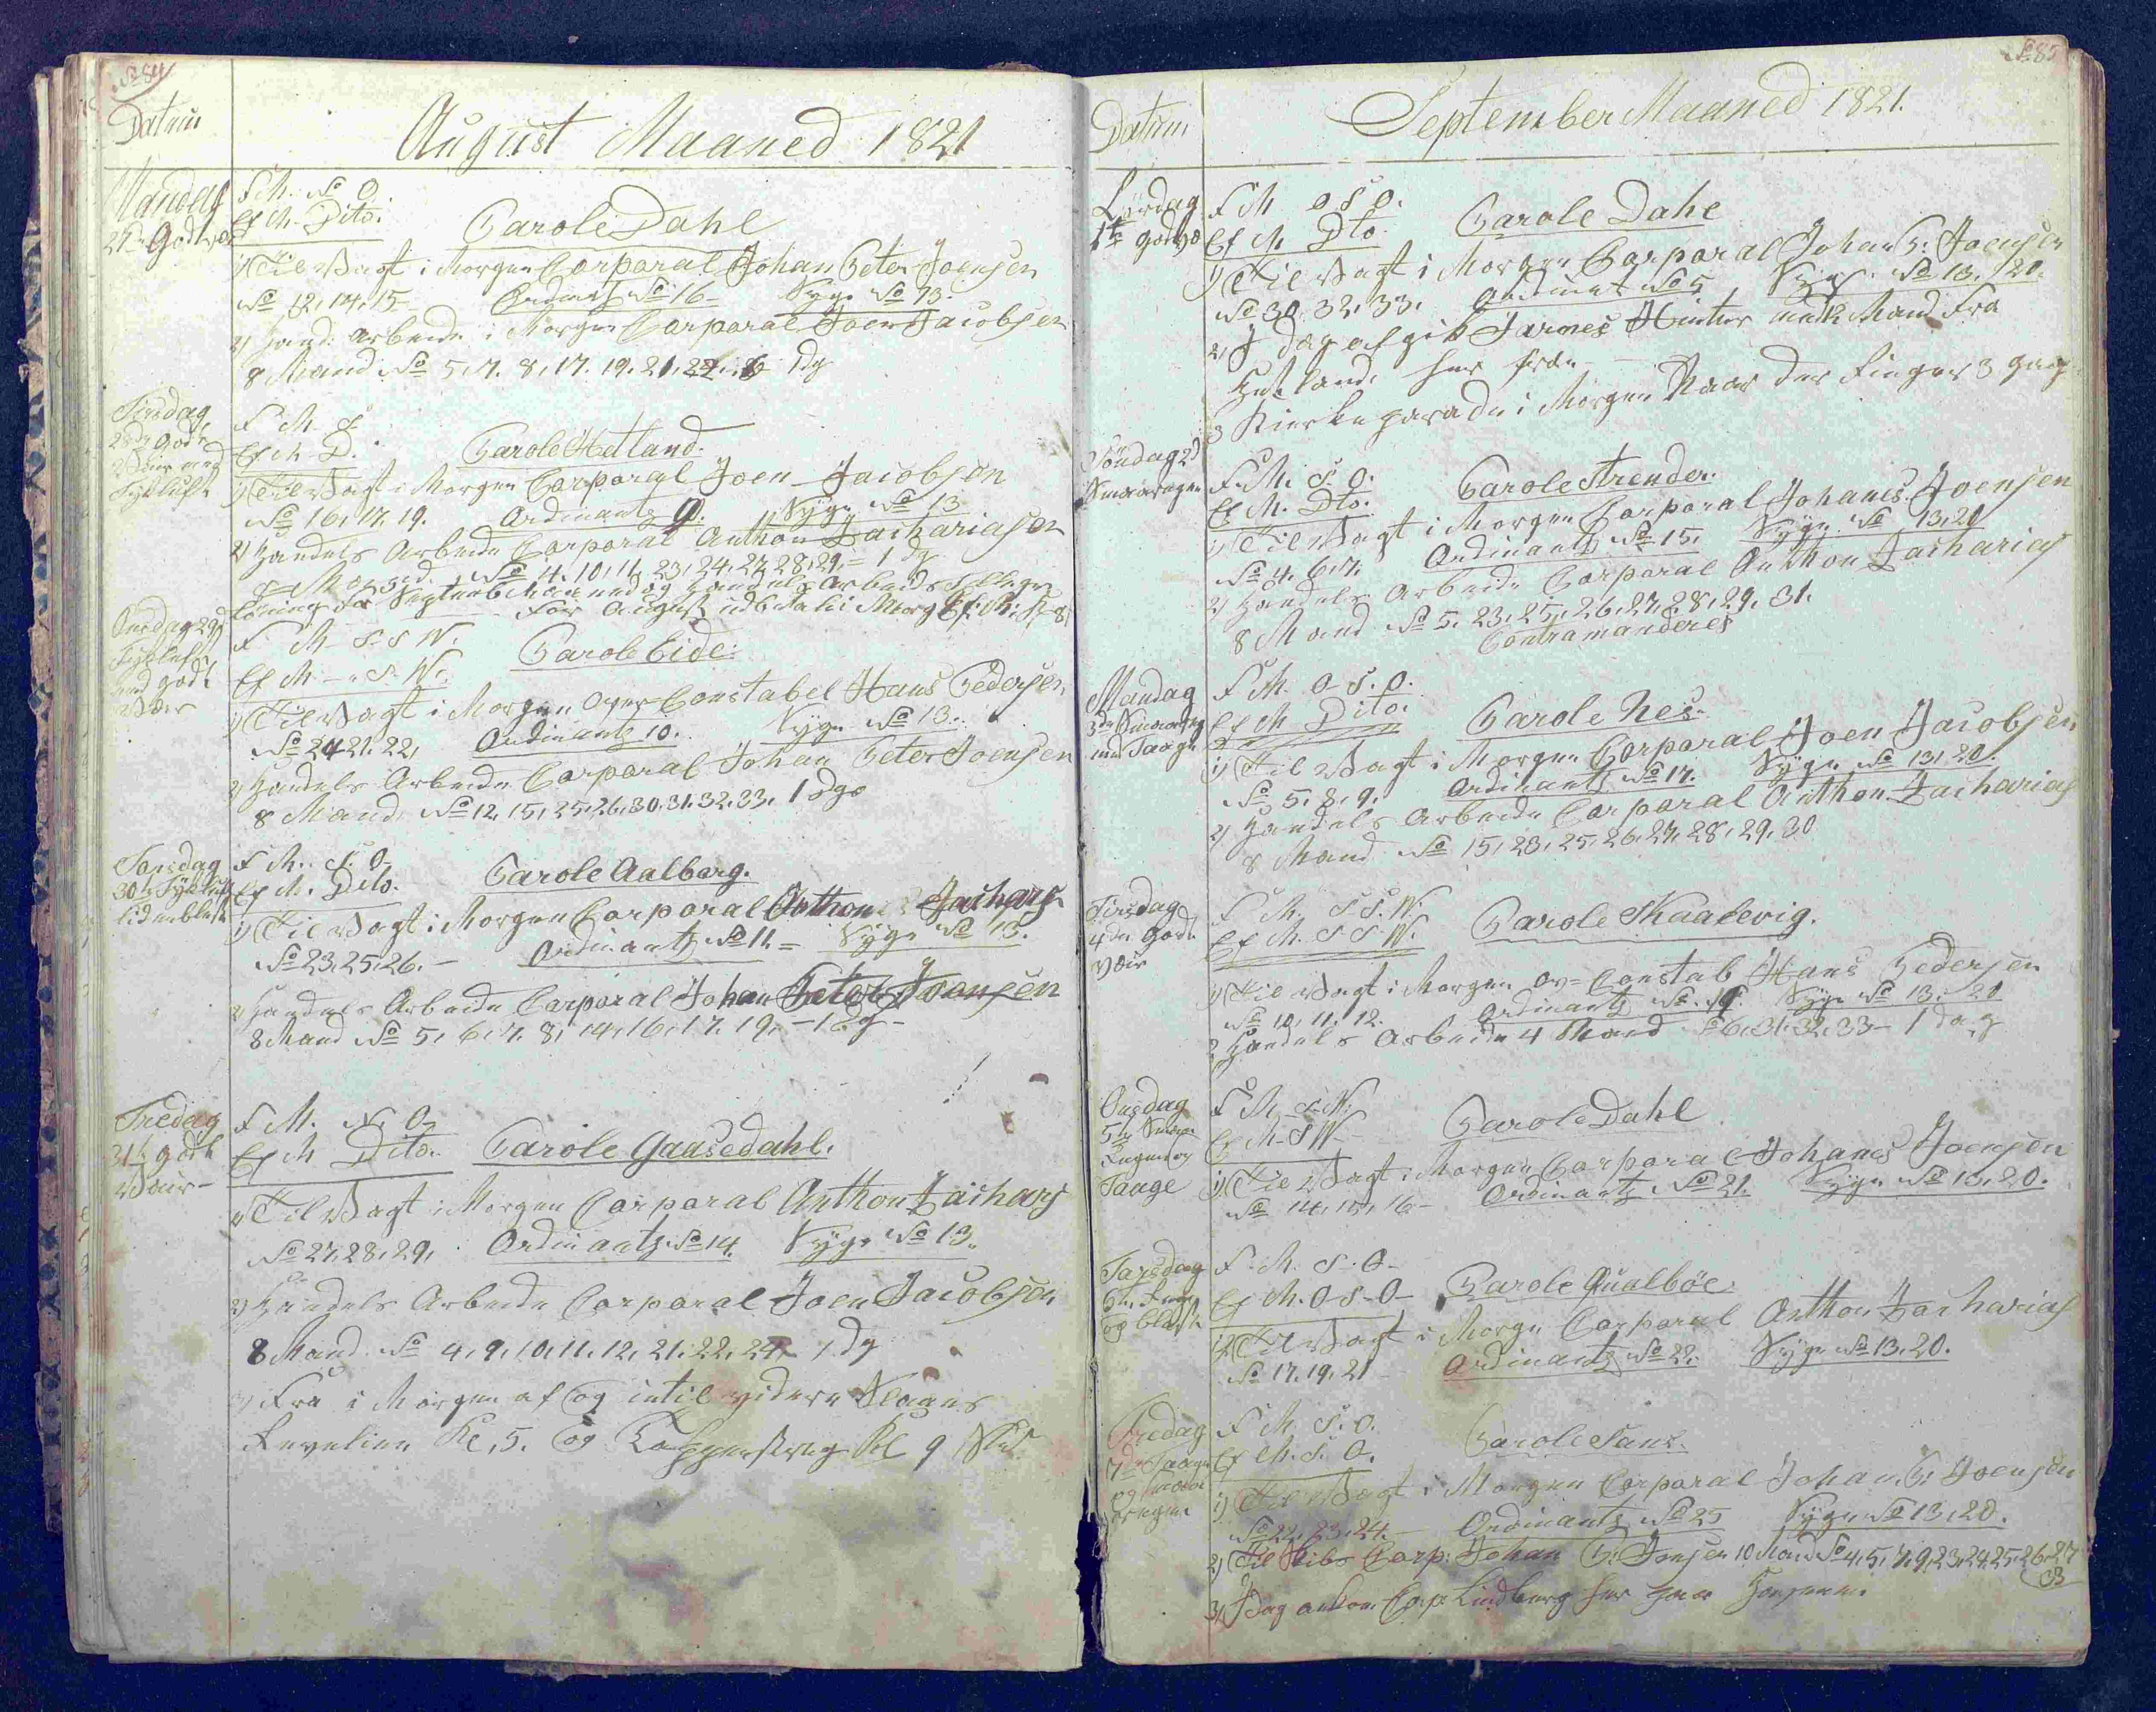 No 84
Datum
August Maaned 1821
Mandag
27de Godt vær
F M. N O
Ef M. Dito.
Parole Dahl
1) Til Vagt i Morgen Corporal Johan Peter Joensen
No 12, 14, 15 Ordinantz No 16 Syge No 13.
2) Hand: Arbeide i Morgen Corporal Joen Jacobsen
8 Mand No 5, 7. 8, 17. 19. 21, 22, 1 dg
Tirsdag
28de Godt
Veir med
Tykluft
F M. S.
Ef M D.
Parole Hetland.
1) Til Vagt i Morgen Corporal Joen Jacobsen
No 16, 17, 19. Ordinantz 9. Syge No 13
2) Handels Arbeide Corporal Anthon Zachariasen
8 Mand No 4, 10, 11, 23, 24, 27, 28, 29, = 1 dg
Løning for September Maaned og Handels Arbeids
for August udbetales i Morg Ef: M: Kl 8
Onsdag 29d
Tykluft
med godt
Vær
F M S. S W.
Ef M. S. W.
Parole Eide.
1) Til Vagt i Morgen Over Constabel Hans Pedersen
No 24 21. 22, Ordinantz 10. Syge No 13.
2) Handels Arbeide Corporal Johan Peter Joensen
8 Mand No 12, 15, 25, 26, 30, 31, 32, 33, 1 dg
Torsdag
30te Tykluft
liden blæst
F M. S. O
Ef M. Dito.
Parole Aalborg.
1) Til Vagt i Morgen Corporal Anthon Zachars
No 23, 25, 26. Ordinantz No 11. = Syge No 13.
2) Handels Arbeide Corporal Johan Peter Joensen
8 Mand No 5, 6, 7. 8, 14, 16, 17, 19, - 1 dg
Fredag
31te godt
Vær
F M. N. O
Ef M Dito. Parole Gaasedahl.
1) Til Vagt i Morgen Corporal Anthon Zachars
No 27, 28, 29, Ordinantz No 14. Syge No 13.
2) Handels Arbeide Corporal Joen Jacobsen
8 Mand No 4, 9, 10, 11. 12, 21. 22, 24 1 dg
3) Fra i Morgen af og intil videre Slaaes
Revelien Kl, 5. og Tappenstreg Kl 9 Slet
No 85
Datum
September Maaned 1821.
Lørdag
1te godt vær
F M O S O.
Ef M. Dto.
Parole Dahl
1) Til Vagt i Morgen Corporal Johan P: Joensen
No 30, 32, 33, Ordinantz No 5 Syge No 13, 20.
2) I dag afgik James Hinter med 2 Mand fra
Hetland her fra
3 Kirke parade i Morgen Naar der Ringes 3 gang
Søndag 2d
Smaaregn
F M. S. O.
Ef M. Dto.
Parole Strender.
1) Til Vagt i Morgen Corporal Johanes Joensen
No 4, 6, 7. Ordinantz No 15. Syge No 13, 20
2) Handels Arbeide Corporal Anthon Zacharias
8 Mand No 5, 23, 25, 26, 27, 28, 29, 31.
Contramanderes
Mandag
3de Smaaregn
med Taage
F M. O S. O.
Ef M Dito.
Parole Nes.
1) Til Vagt i Morgen Corporal Joen Jacobsen
No 5, 8, 9. Ordinantz No 17. Syge No 13, 20.
2) Handels Arbeide Corporal Anthon Zacharias
8 Mand No 15, 23, 25, 26, 27, 28, 29, 30
Tirsdag
4de godt
Vær
F M. S S. W.
Ef M. S S W.
Parole Skaalevig.
1) Til Vagt i Morgen Ov= Constab Hans Pedersen
No 10, 11, 12. Ordinantz No 19. Syge No 13. 20
2 Handels Arbeide 4 Mand No 6, 31, 32, 33 - 1 dag
Onsdag
5te Smaa
Regn og
Taage
F M S W.
Ef M S W
Parole Dahl
1) Til Vagt i Morgen Corporal Johanes Joensen
No 14, 15, 16 Ordinantz No 21. Syge No 13, 20.
Torsdag
6te Regn
og blæst
F. M. S. O
Ef M. O S O
Parole Qualbøe
1) Til Vagt i Morgn Corporal Anthon Zacharias
No 17. 19. 21 Ordinantz No 22. Syge No 13, 20.
Fredag
7de Taage
og Smaa
Regn
F M S. O.
Ef M. S. O.
Parole Sand.
1) Til Vagt i Morgen Corporal Johan P: Joensen
No 22, 23, 24. Ordinantz No 25 Syge No 13, 20.
2) Til Skibs Corp: Johan P: Joensen 10 Mand No 4, 5, 7, 9, 23, 24, 25, 26, 27
33
3) I dag ankom Corp Lindberg her paa